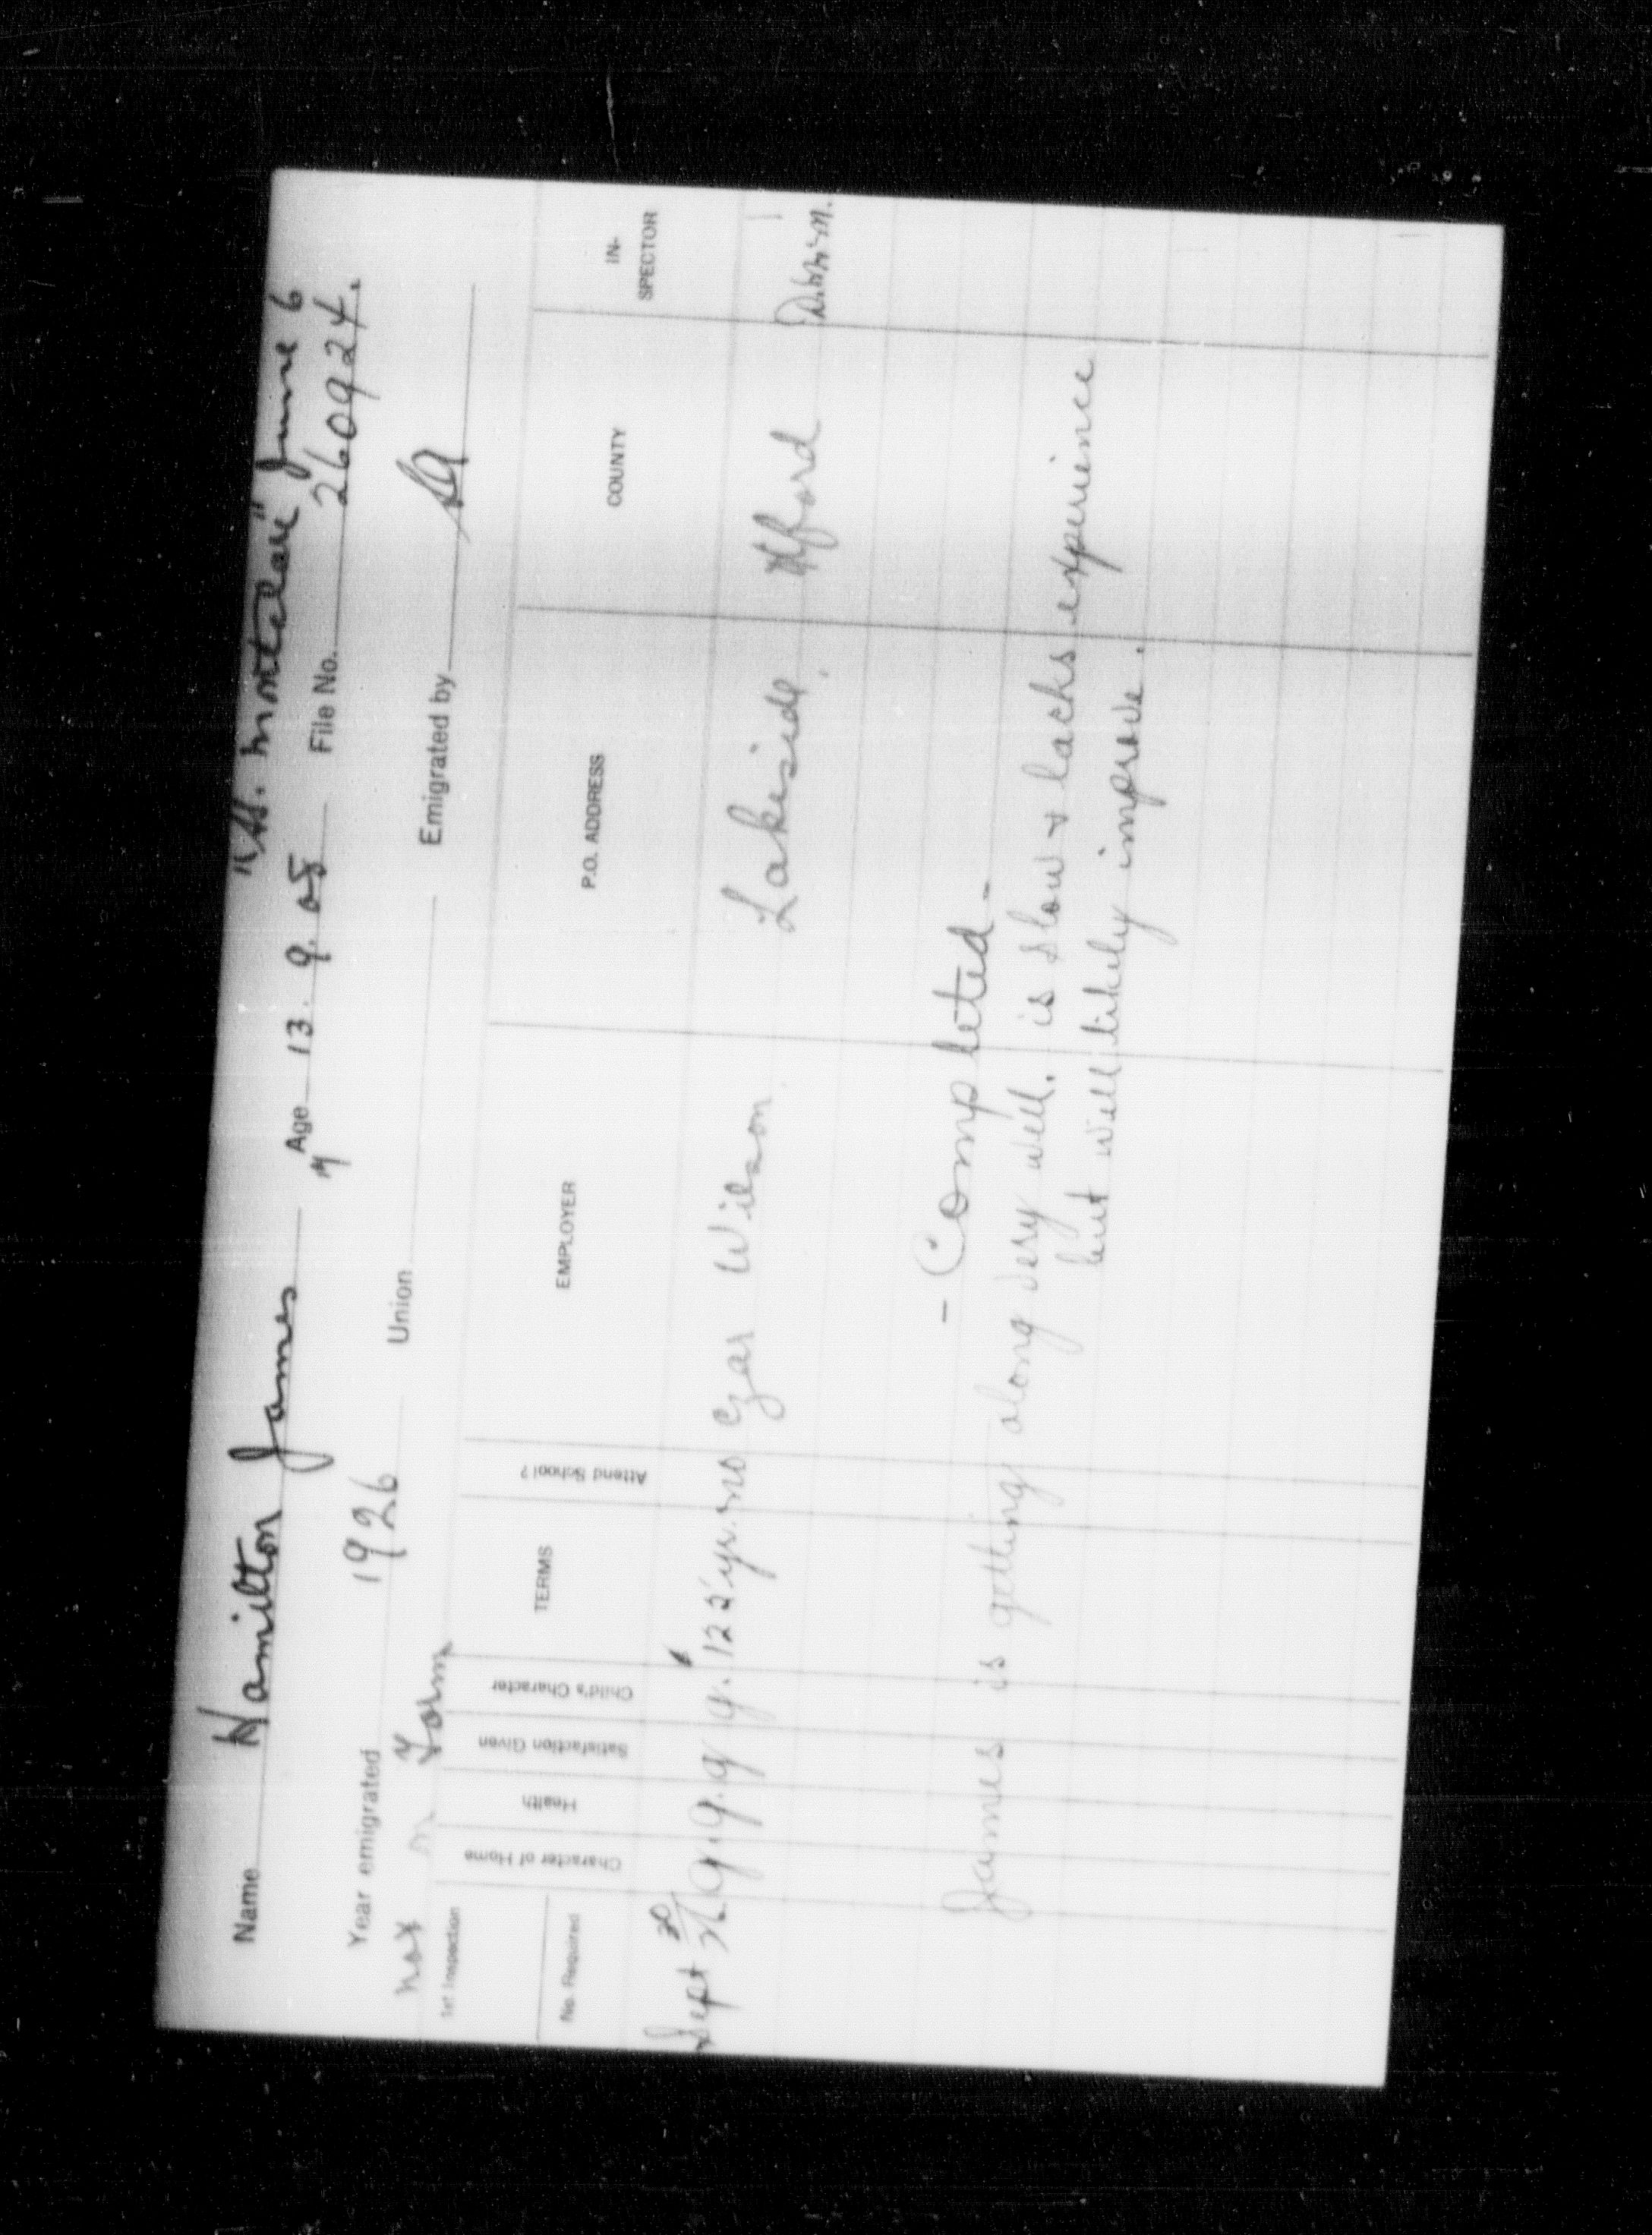 "SS. Montclair" June 6
Name Hamilton James Age 13. 9. 08 File No. 260924.
M
Year emigrated 1926 Union Emigrated by SA
not on Form
1st Inspection
No. Required
Character of Home
Health
Satisfaction Given
Child's Character
TERMS
Attend School?
EMPLOYER
P.O. ADDRESS
COUNTY
IN-
SPECTOR
Sept 30/26 g. g. g g. 125 yr. no Czar Wilson Lakeside Oxford
- Completed -
James is getting along very well. is slow + lacks experience
but will likely improve.